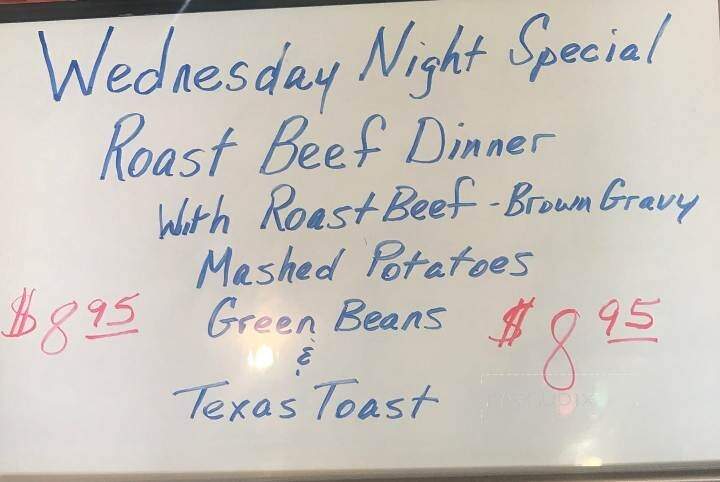 Wednesday Night Special
Roast Beef Dinner
With Roast Beef - Brown Gravy
Mashed Potatoes
$8 95 Green Beans $8 95
&
Texas Toast